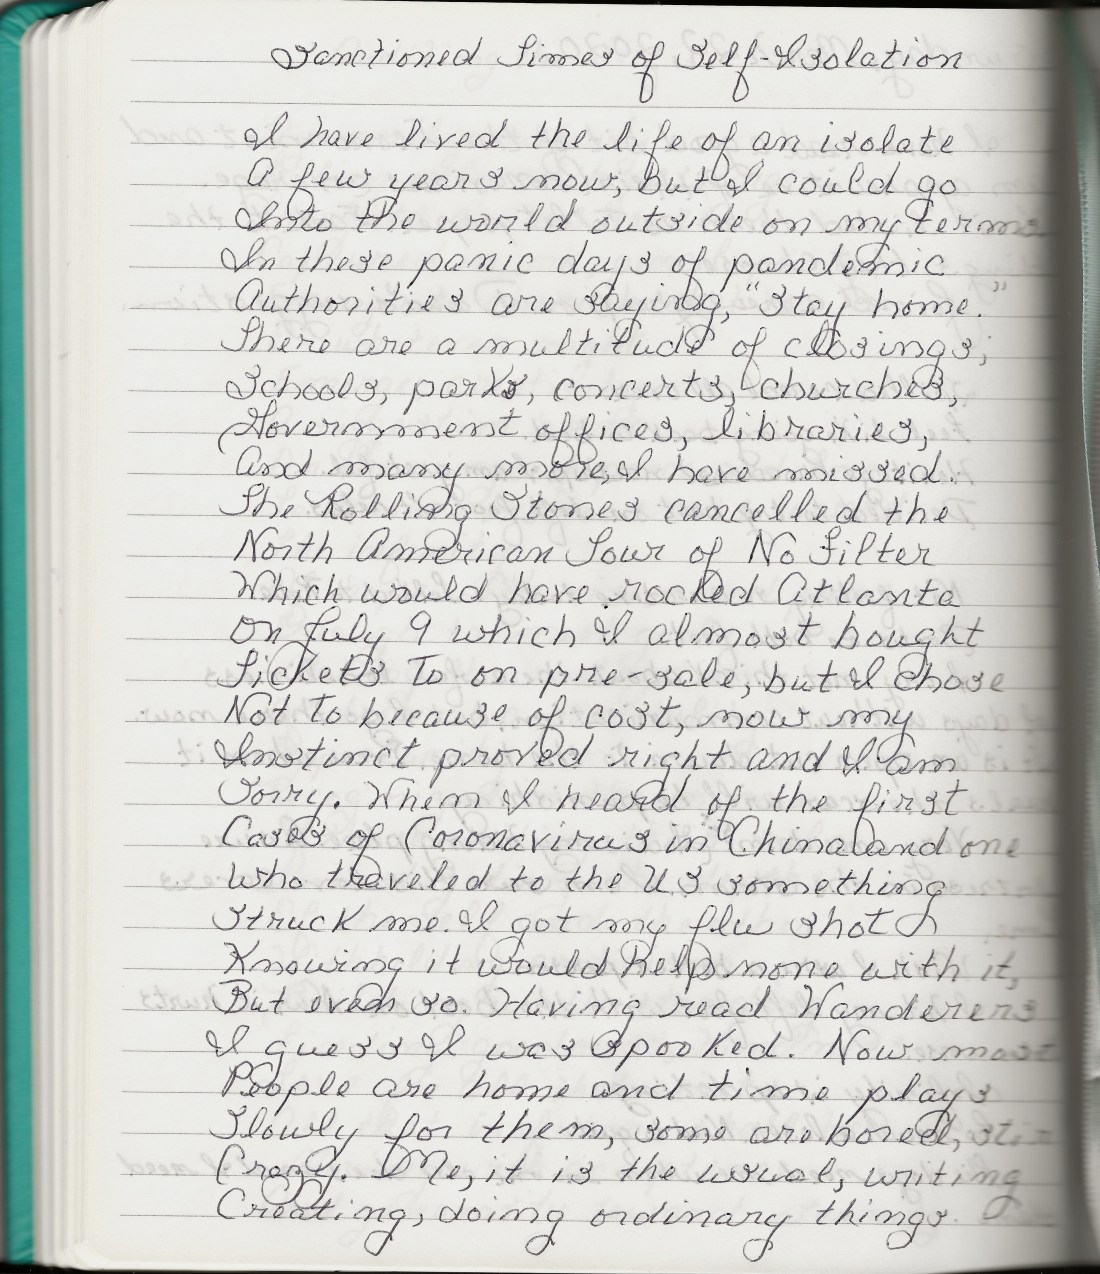 Sanctioned Times of Self-Isolation
I have lived the life of an isolate
A few years now, but I could go
Into the world outside on my terms
In these panic days of pandemic
Authorities are saying, "Stay home."
There are a multitude of closings;
Schools, parks, concerts, churches,
Government offices, libraries,
And many more, I have missed.
The Rolling Stones cancelled the
North American Tour of No Filter
Which would have rocked Atlanta
On July 9 which I almost bought
Tickets To on pre-sale, but I chose
Not To because of cost, now my
Instinct proved right and I am
Sorry. When I heard of the first
Cases of Coronavirus in China and one
Who traveled to the US something
Struck me. I got my flu shot
Knowing it would help none with it,
But even so. Having read Wanderers
I guess I was spooked. Now most
People are home and time plays
Slowly for them, some are bored, stir
Crazy. Me, it is the usual, writing
Creating, doing ordinary things.